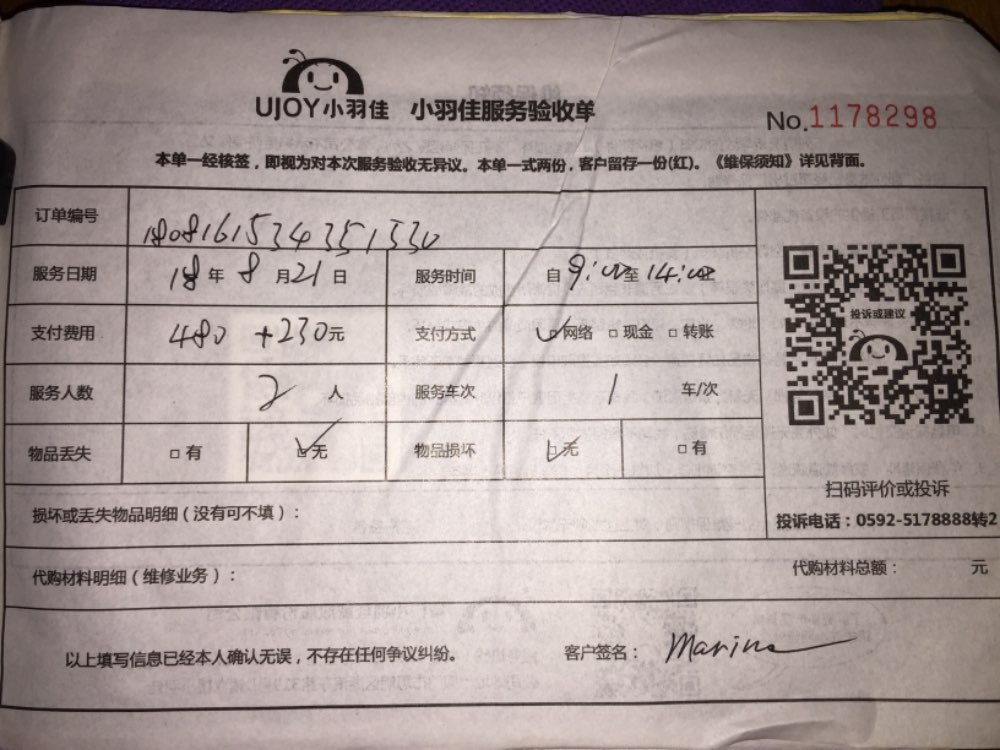 UJOY小羽佳 小羽佳服务验收单
No.1178298
本单一经核签，即视为对本次服务验收无异议。本单一式两份，客户留存一份(红)。《维保须知》详见背面。
订单编号 1808161534351330
服务日期 18年8月21日 服务时间 自9:00至14:00
支付费用 480+230元 支付方式 ☑网络 □现金 □转账
服务人数 2人 服务车次 1 车/次
物品丢失 □有 ☑无 物品损坏 ☑无 □有
投诉或建议
扫码评价或投诉
投诉电话：0592-5178888转2
损坏或丢失物品明细（没有可不填）：
代购材料明细（维修业务）： 代购材料总额： 元
以上填写信息已经本人确认无误，不存在任何争议纠纷。 客户签名：Marina